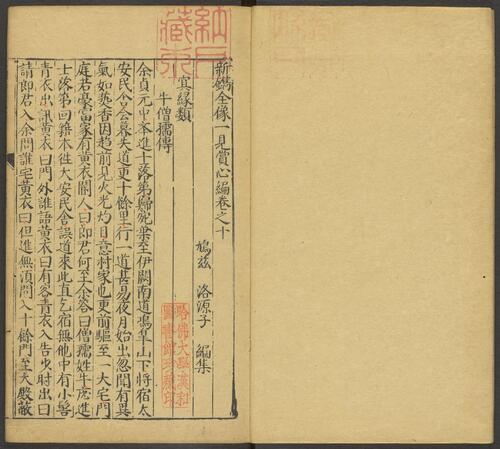 新鐫全像一見賞心編卷之十
鳩茲 洛源子 編集
冥緣類
牛僧孺傳
余貞元中舉進士落第歸宛葉至伊闕南道鳴皋山下將宿太
安民舍會暮失道更十餘里行一道甚易夜月始出忽聞有異
氣如熱香因趍前見火光灼目意村家也更前驅至一大宅門
庭若豪富家有黃衣閽人曰郎君何至余答曰僧孺姓牛應進
士落第回籍本往大安民舍誤道來此直乞宿無他中有小髻
青衣出訊黃衣曰門外誰語黃衣曰有客青衣入告少時出曰
請郎君入余問誰宅黃衣曰但進無須問入十餘門至大殿蔽
哈佛大學漢和
圖書館珍藏印
藏